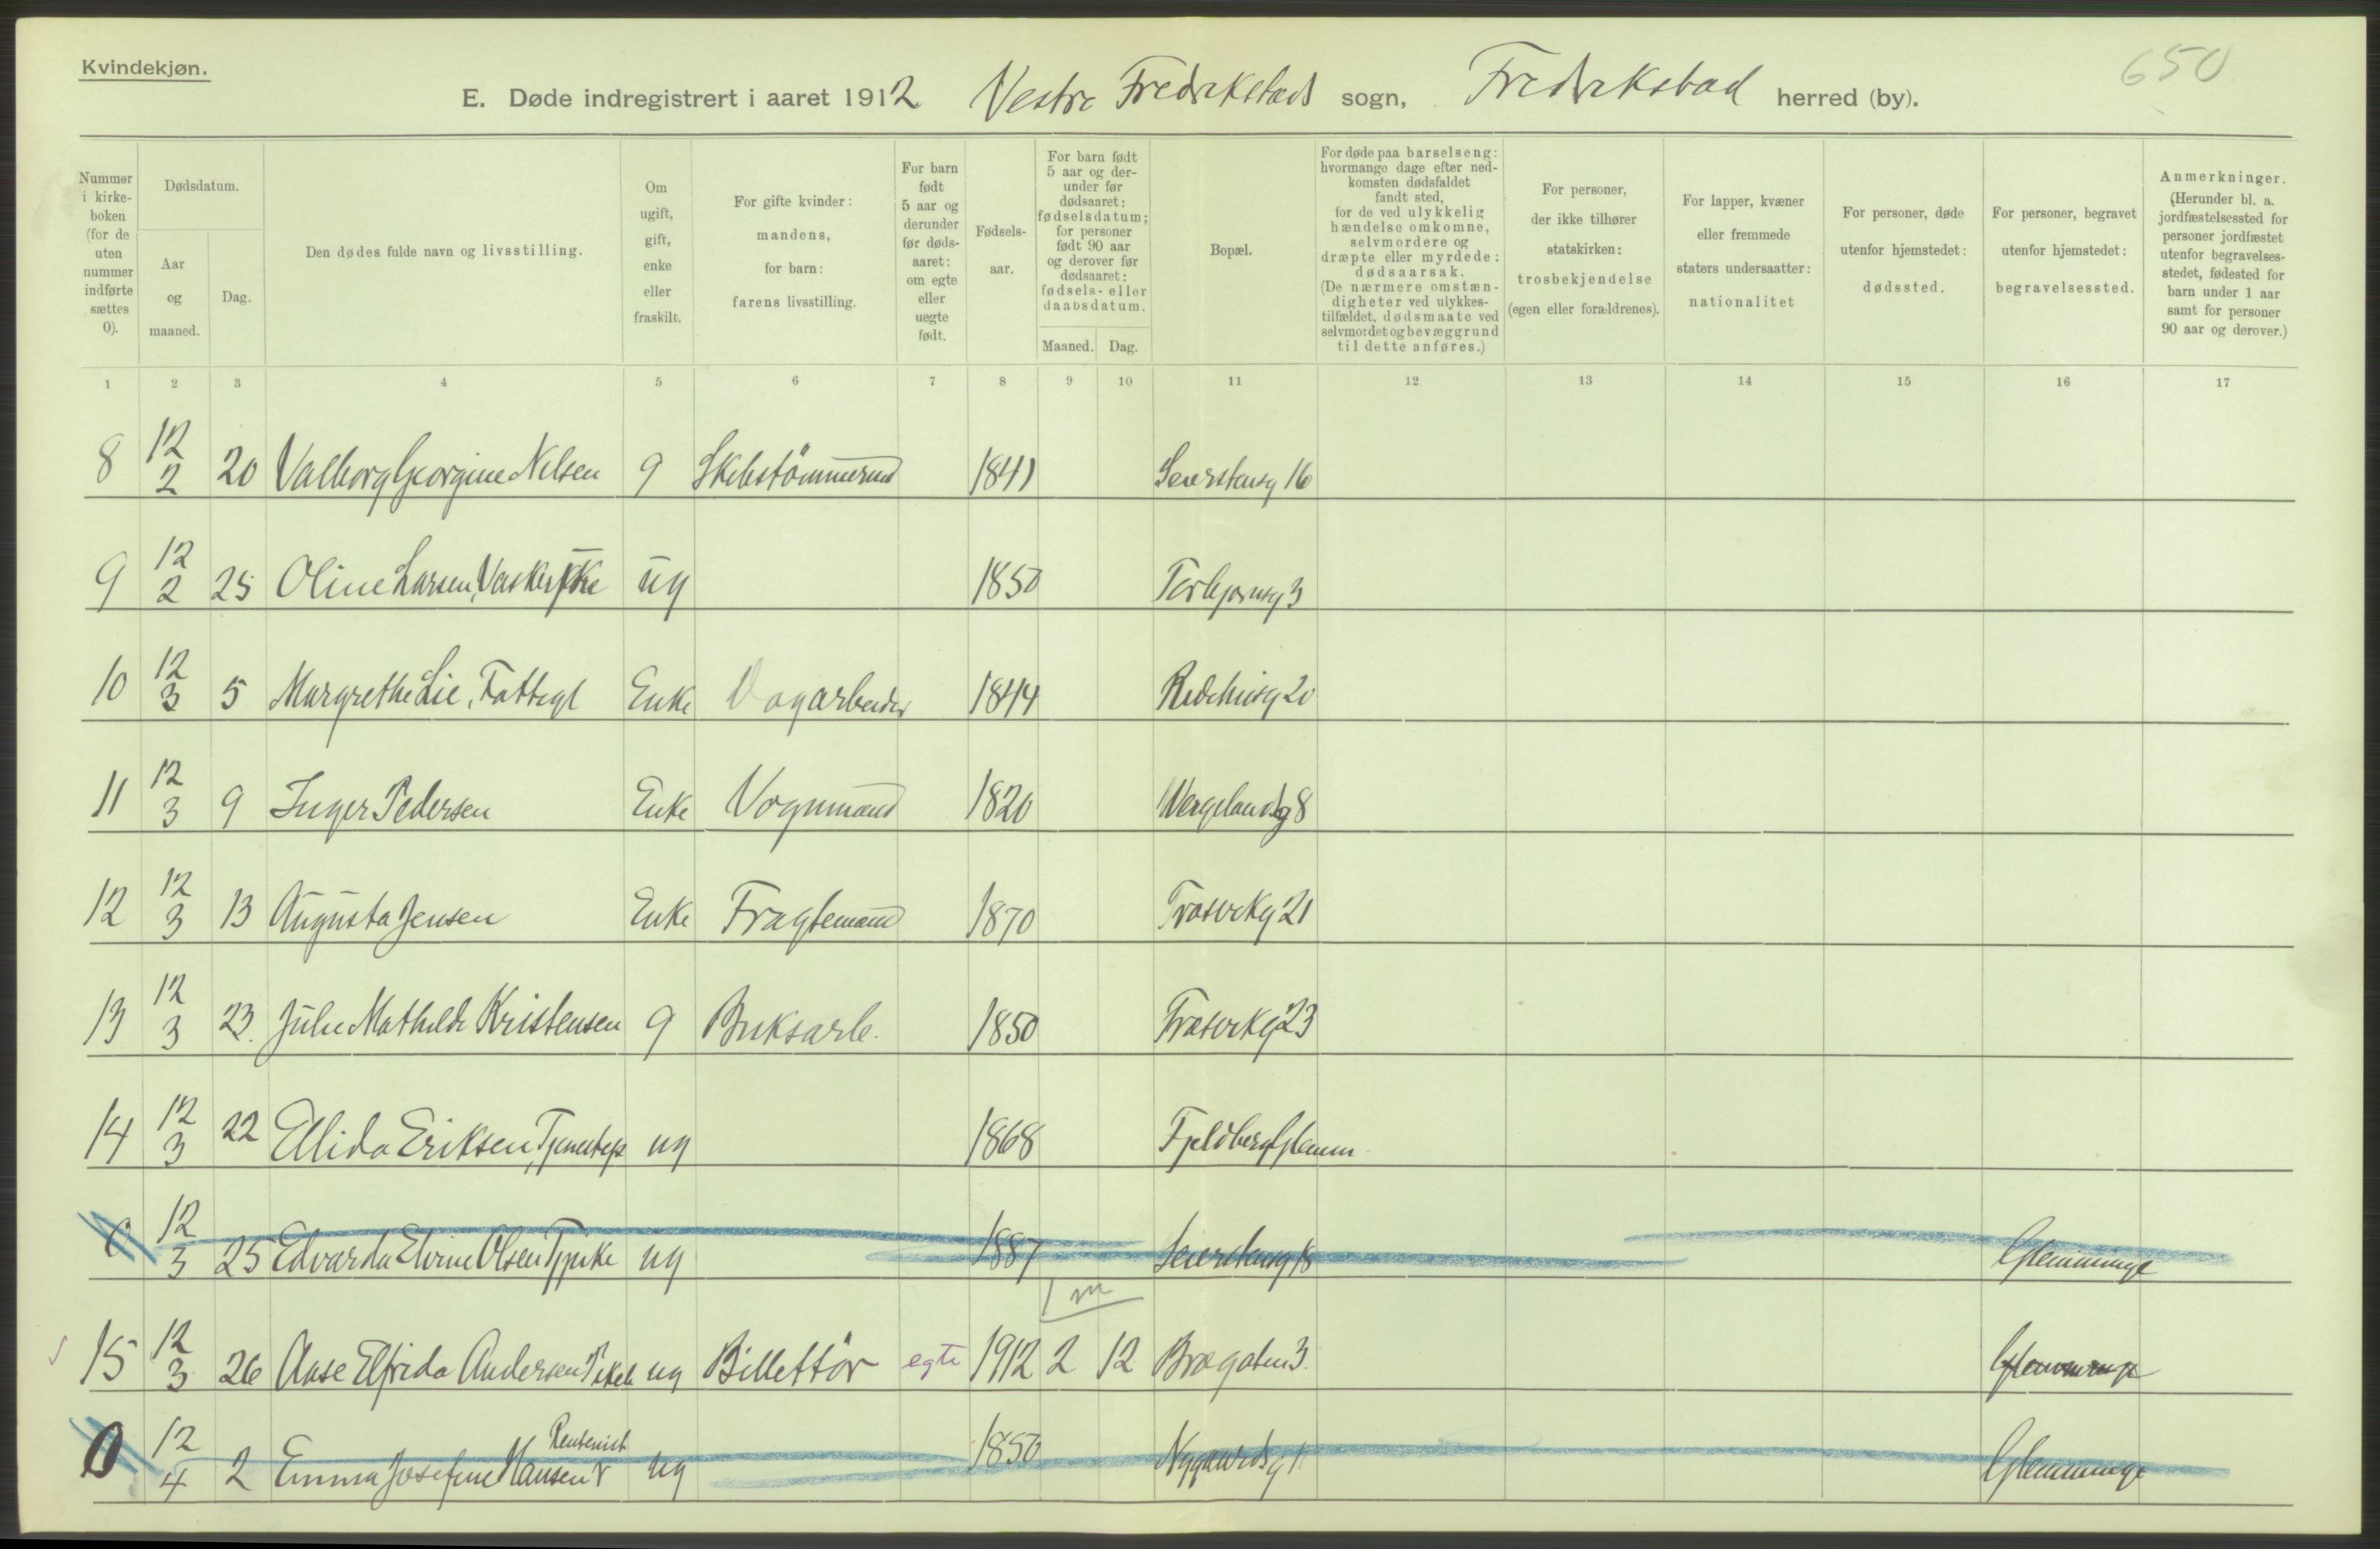 Kvindekjøn.
650
E. Døde indregistrert i aaret 1912 Vestre Fredrikstads sogn, Fredrikstad herred (by).
Nummer i kirkeboken (for de uten nummer indførte sættes 0).
Dødsdatum.
Aar og maaned.
Dag.
Den dødes fulde navn og livsstilling.
Om ugift, gift, enke eller fraskilt.
For gifte kvinder: mandens, for barn: farens livsstilling.
For barn født 5 aar og derunder før dødsaaret: om egte eller uegte født.
Fødselsaar.
For barn født 5 aar og derunder før dødsaaret: fødselsdatum; for personer født 90 aar og derover før dødsaaret: fødsels- eller daabsdatum.
Maaned. Dag.
Bopæl.
For døde paa barselseng: hvormange dage efter nedkomsten dødsfaldet fandt sted, for de ved ulykkelig hændelse omkomne, selvmordere og dræpte eller myrdede: dødsaarsak. (De nærmere omstændigheter ved ulykkestilfældet, dødsmaate ved selvmordet og bevæggrund til dette anføres.)
For personer, der ikke tilhører statskirken: trosbekjendelse (egen eller forældrenes).
For lapper, kvæner eller fremmede staters undersaatter: nationalitet
For personer, døde utenfor hjemstedet: dødssted.
For personer, begravet utenfor hjemstedet: begravelsessted.
Anmerkninger. (Herunder bl. a. jordfæstelsessted for personer jordfæstet utenfor begravelsesstedet, fødested for barn under 1 aar samt for personer 90 aar og derover.)
1 2 3 4 5 6 7 8 9 10 11 12 13 14 15 16 17
8 12/2 20 Valborg Georgine Nilsen g Skibstömmermd 1841 Seierstensg 16
9 12/2 25 Oline Larsen, ug 1850 Torbjørnsg 3
10 12/3 5 Margrethe Lie, Fattigl Enke Dagarbeider 1844 20
11 12/3 9 Inger Pedersen Enke Vognmand 1820 Wergelandsg 8
12 12/3 13 Augusta Jensen Enke Fragtemand 1870 Trosvikg 21
13 12/3 23. Julie Mathilde Kristensen g Bruksarb. 1850 Trosvikg 23
14 12/3 22 Ellida Eriksen, ug 1868 Fjeldberg Glemm
0 12/3 25 Edvarda Elvine Olsen Tjpike ug 1887 Seierstensg 18 Glemminge
1 m
15 12/3 26 Aase Elfrida Andersen Pikeb ug Billettör egte 1912 2 12 Bragaten 3. Glemminge
0 12/4 2 Emma Josefine Hansen Rentenist ug 1850 Nygaardsg 11 Glemminge